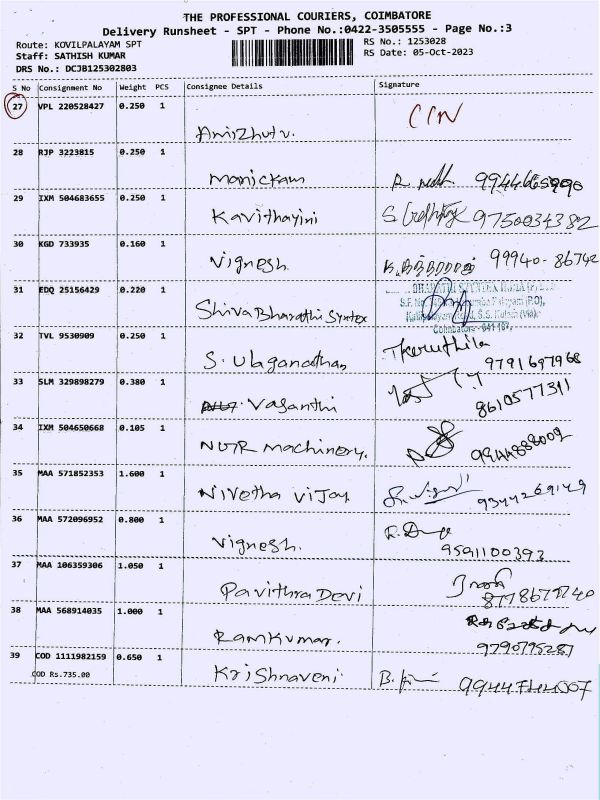 THE PROFESSIONAL COURIERS, COIMBATORE
Delivery Runsheet - SPT - Phone No.:0422-3505555 - Page No.:3
Route: KOVILPALAYAM SPT
RS No.: 1253028
Staff: SATHISH KUMAR
RS Date: 05-Oct-2023
DRS No.: DCJB125302803
S No Consignment No Weight PCS Consignee Details Signature
27 VPL 220528427 0.250 1
28 RJP 3223815 0.250 1 Manickam 9944665990
29 IXM 504683655 0.250 1 Kavithayini 9750034382
30 KGD 733935 0.160 1 Vignesh 99940-86742
31 EDQ 25156429 0.220 1 Shiva Bharathi Syntex
Coimbatore - 641 107.
32 TVL 9530909 0.250 1 S. Ulaganathan 9791697968
33 SLM 329898279 0.380 1 Vasanthi 8610577311
34 IXM 504650668 0.105 1 NGR Machinery. 9944888009
35 MAA 571852353 1.600 1 Nivetha Vijay 9344269149
36 MAA 572096952 0.800 1 Vignesh. 9591100393
37 MAA 106359306 1.050 1 Pavithra Devi
38 MAA 568914035 1.000 1 Ramkumar. 9790795287
39 COD 1111982159 0.650 1 Krishnaveni
COD Rs.735.00